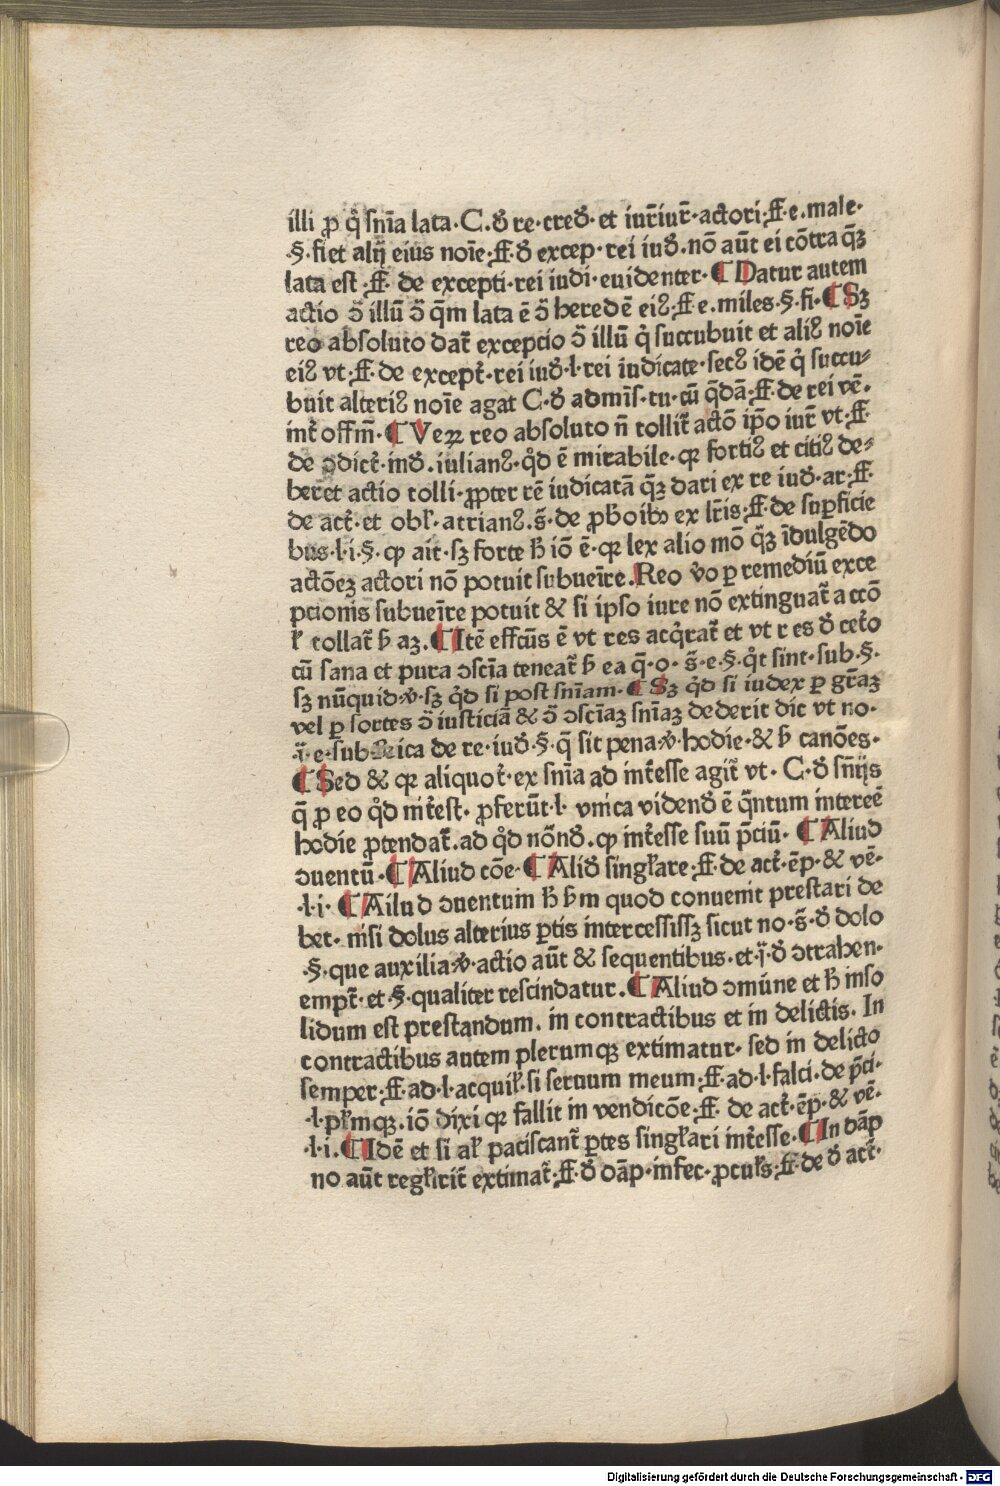 illi ꝓ q̇ sn̄ia lata·C.đ re·cređ·et iur̄iur̄·actori·ff·e.male·
·§·fi et alij eius noīe·ff·đ excep·rei iuđ.nō aūt ei cōtra q̄ꝫ
lata est·ff·de excepti·rei iudi·euidenter·¶ Datur autem
actio ↄ̄ illū ↄ̄ q̄m lata ē ↄ̄ heredē eiꝰ·ff·e.miles·§·fi·¶ Sꝫ
reo absoluto dat̄ excepcio ↄ̄ illū q̇ succubuit et aliꝰ noīe
eiꝰ vt·ff·de except̄·rei iuđ·l·rei iudicate·secꝰ idē q̇ succu⸗
buit alteriꝰ noīe agat C·đ admīs·tu·cū q̄dā·ff·de rei vē·
int̄ offm̄·¶ Veꝝ reo absoluto n̄ tollit̄ actō ip̄o iur̄ vt·ff·
de ↄdict̄·inđ.iulianꝰ·q̇d ē mirabile·qꝛ fortiꝰ et citiꝰ de⸗
beret actio tolli·ꝓpter rē iudicatā q̄ꝫ dari ex re iuđ·ar·ff·
de act̄·et obł·atrianꝰ.s̄·de ꝓhoibito ex lr̄is·ff·de suꝑficie
bus·l·i·§·ꝙ ait·sꝫ forte ħ iō ē·qꝛ lex alio mō q̄ꝫ īdulgēdo
actōeꝫ actori nō potuit subueīre.Reo v̇o ꝑ remediū exce
pcionis subueīre potuit & si ipso iure nō extinguat̄ accō
ł tollat̄ ꝑ aꝫ.¶ Itē effcūs ē vt res acq̇rat̄ et vt res đ cet̄o
cū sana et pura ↄscīa teneat̄ ꝑ ea q̄·o·s̄·e·§·q̇t sint·sub·§·
sꝫ nūquid·ꝟ·sꝫ q̇d si post sn̄iam·¶ Sꝫ q̇d si iudex ꝑ gr̄aꝫ
vel ꝑ sortes ↄ̄ iusticiā & ↄ̄ ↄscīaꝫ sn̄iaꝫ dederit dic vt no·
·ī·e·sub rica de re·iuđ·§·q̄ sit pena·ꝟ·hodie·& ꝑ canōes·
¶ Sed & qꝛ aliquot̄·ex sn̄ia ad int̄esse agit̄ vt·C·đ sn̄ijs
q̄ ꝓ eo q̇d int̄est·ꝓferūt·l·vnica videnđ ē q̄ntum intereē
hodie ꝓtendat̄.ad q̇d nōnđ.ꝙ int̄esse suū p̄ciū·¶ Aliud
ↄuentū·¶ Aliud cōe·¶ Aliđ singłare·ff·de act̄·ēp·& vē·
·l·i·¶ Ailud ↄuentum ħ ħm quod conuenit prestari de
bet·nisi dolus alterius ꝑtis intercessissꝫ sicut no·s̄·đ dolo
·§·que auxilia·ꝟ·actio aūt & sequentibus·et·ī·đ ↄtrahen·
empt̄·et·§·qualiter rescindatur.¶ Aliud ↄmūne et ħ inso
lidum est prestandum.in contractibus et in delictis.In
contractibus autem plerumqꝫ extimatur·sed in delicto
semper·ff·ad·l·acquił·si seruum meum·ff·ad·l·falci·de p̄ci·
·l·płmqꝫ.iō dixi qꝛ fallit in vendicōe·ff·de act̄·ēp·& vē·
·l·i.¶ Idē et si ał paciscant̄ ꝑtes singłari int̄esse·¶ In dāp
no aūt regłrit̄ extimat̄·ff·đ dāp·infec·ꝓcułs·ff·de đ act̄·
Digitalisierung gefördert durch die Deutsche Forschungsgemeinschaft - DFG